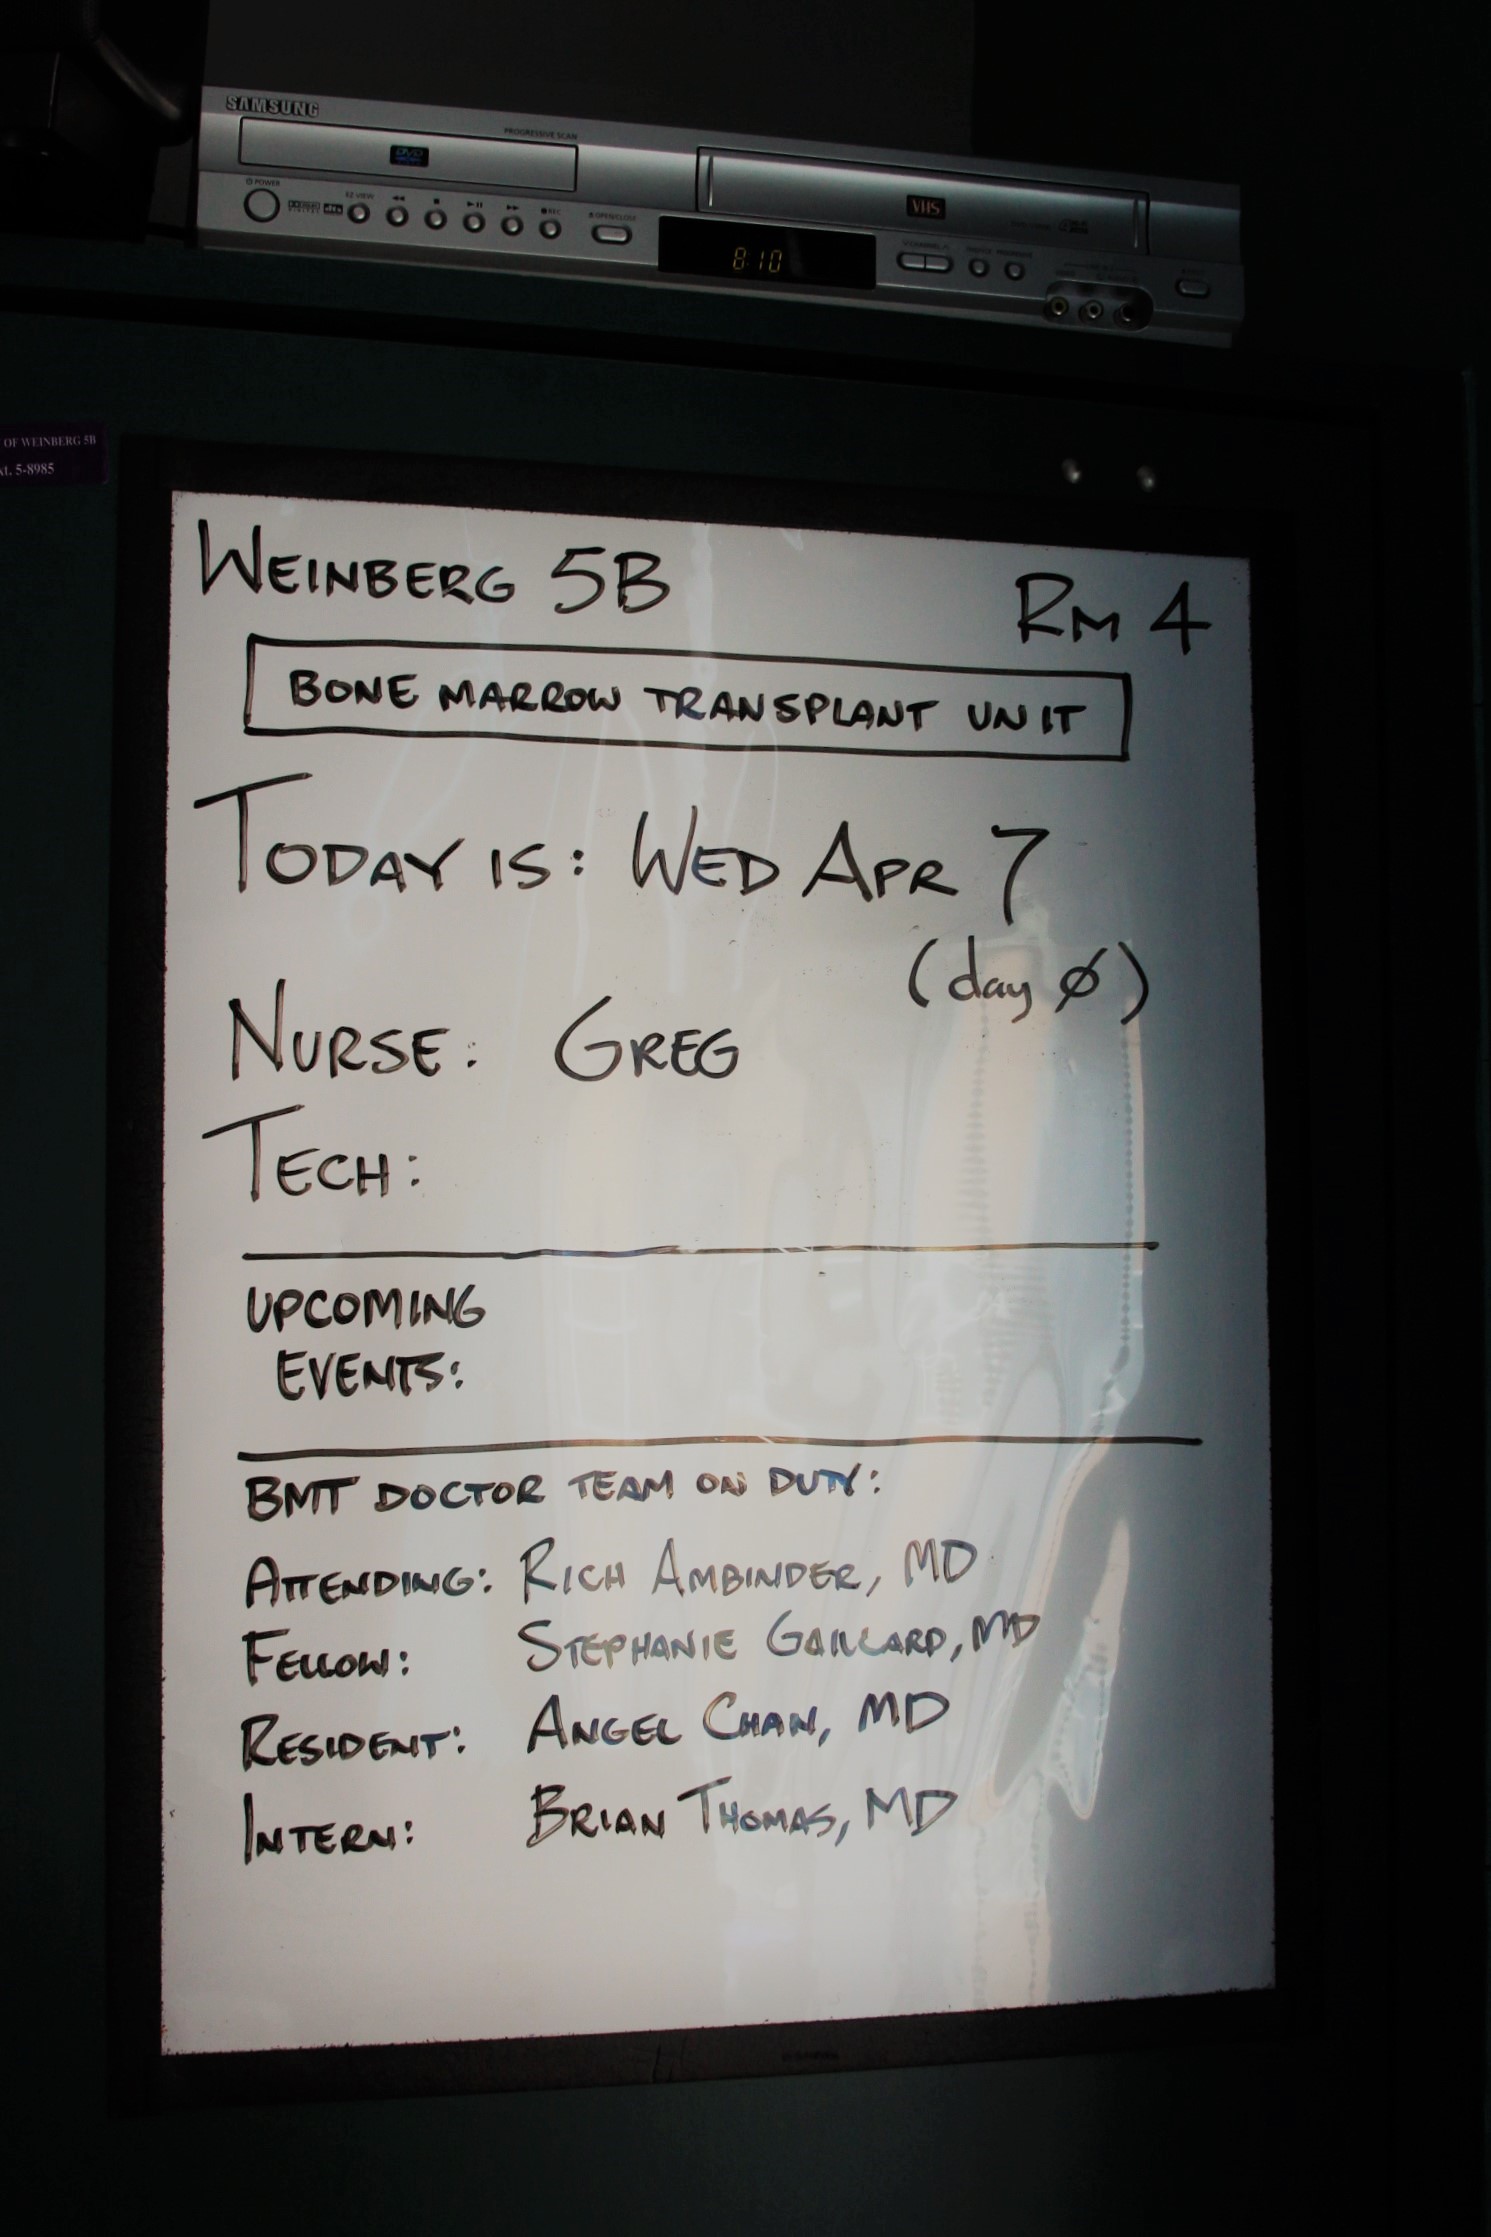 SAMSUNG
PROGRESSIVE SCAN
DVD
POWER
EZ VIEW
REC
OPEN/CLOSE
VHS
CHANNEL
8:10
OF WEINBERG 5B
xt. 5-8985
WEINBERG 5B
RM 4
BONE MARROW TRANSPLANT UNIT
TODAY IS: WED APR 7
(day ø)
NURSE: GREG
TECH:
UPCOMING
EVENTS:
BMT DOCTOR TEAM ON DUTY:
ATTENDING: RICH AMBINDER, MD
FELLOW: STEPHANIE GAILLARD, MD
RESIDENT: ANGEL CHAN, MD
INTERN: BRIAN THOMAS, MD